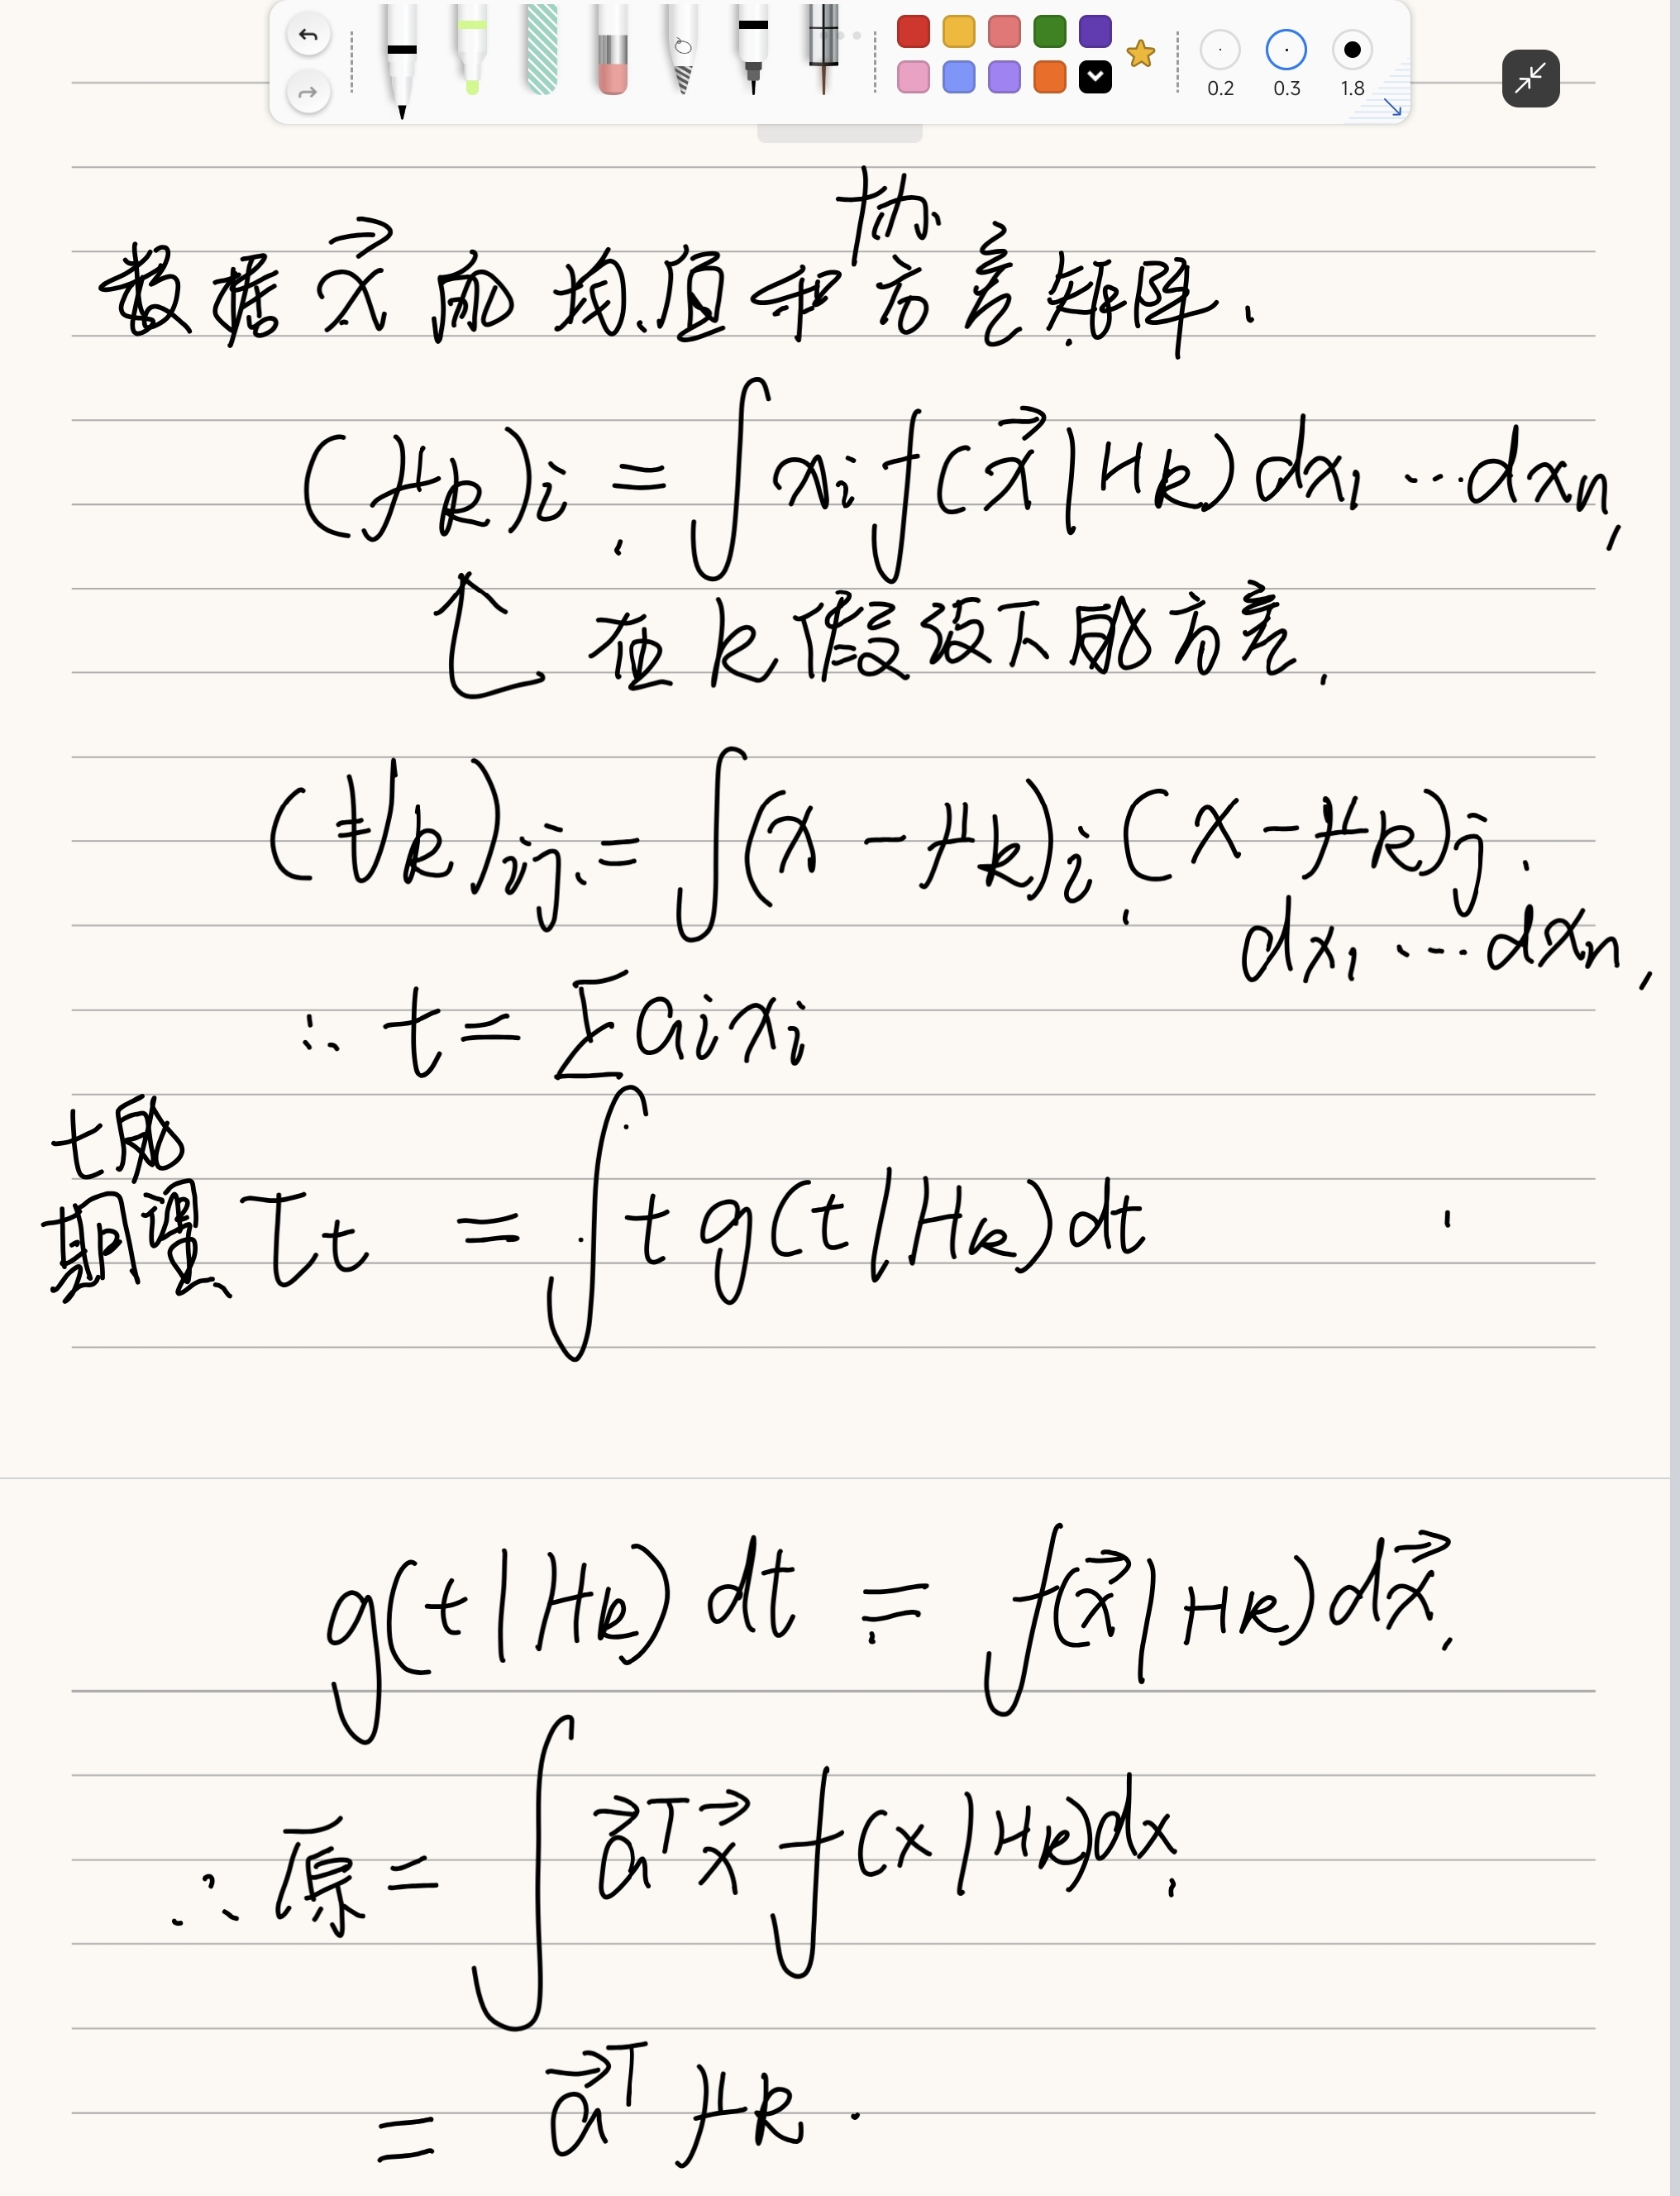 0.2 0.3 1.8
协
数据 x⃗ 的均值和方差矩阵.
(μk)i = ∫ xi f(x⃗|Hk) dx1 ... dxn,
在 k 假设下的方差.
(Vk)ij = ∫(x - μk)i (x - μk)j
dx1 ... dxn,
∴ t = Σaixi
t的
期望 τt = ∫ t g(t|Hk) dt
g(t|Hk) dt = f(x⃗|Hk) dx⃗,
∴ 原 = ∫ a⃗ᵀ x⃗ f(x|Hk) dx,
= a⃗ᵀ μk.